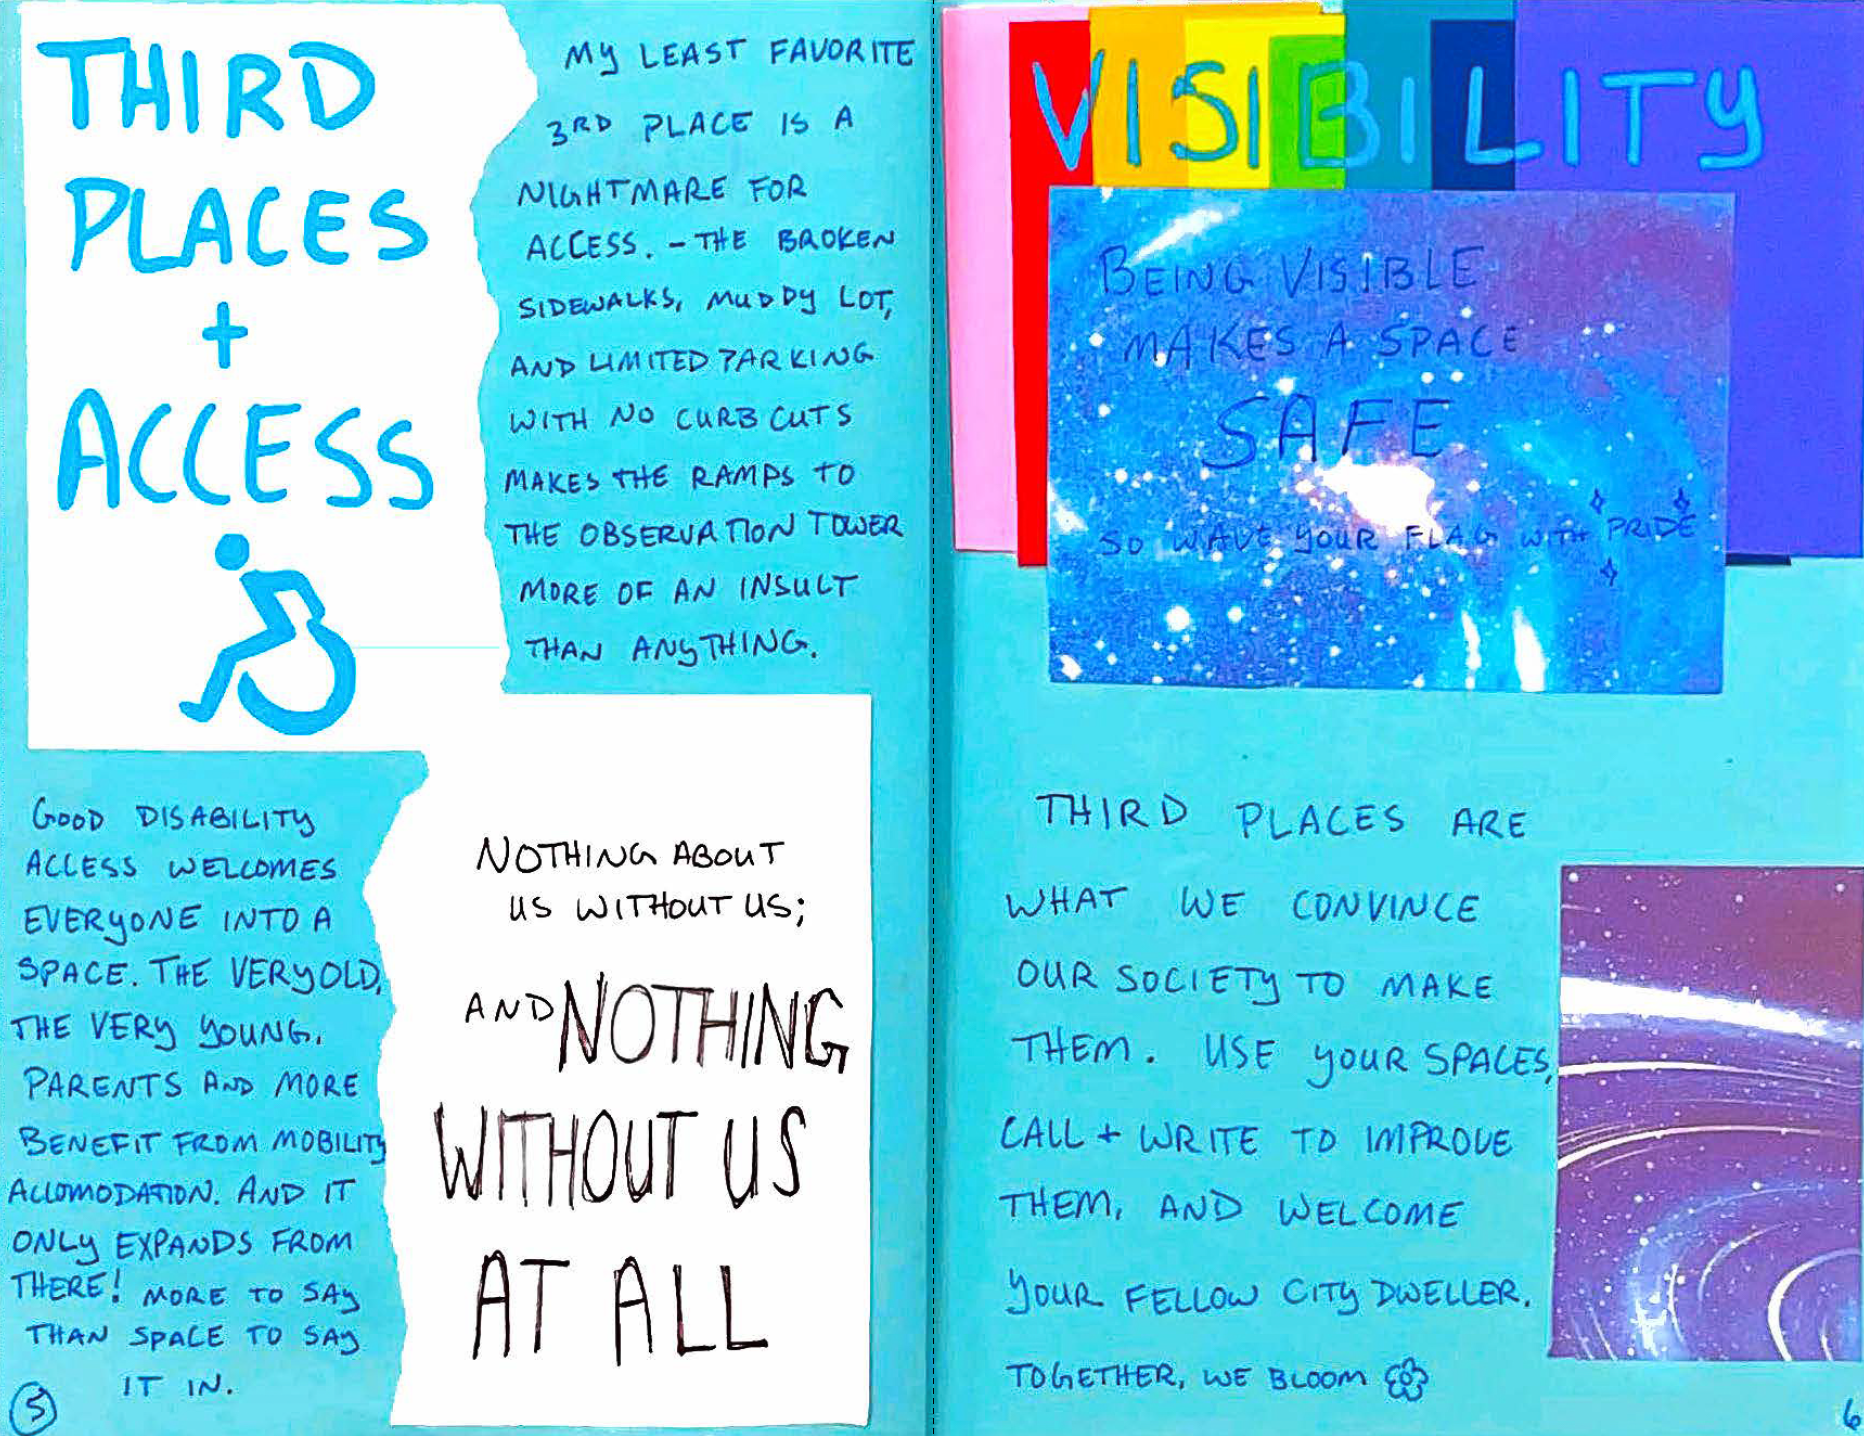 THIRD
PLACES
+
ACCESS
MY LEAST FAVORITE
3RD PLACE IS A
NIGHTMARE FOR
ACCESS. - THE BROKEN
SIDEWALKS, MUDDY LOT,
AND LIMITED PARKING
WITH NO CURB CUTS
MAKES THE RAMPS TO
THE OBSERVATION TOWER
MORE OF AN INSULT
THAN ANYTHING.
GOOD DISABILITY
ACCESS WELCOMES
EVERYONE INTO A
SPACE. THE VERY OLD,
THE VERY YOUNG.
PARENTS AND MORE
BENEFIT FROM MOBILITY
ACCOMODATION. AND IT
ONLY EXPANDS FROM
THERE! MORE TO SAY
THAN SPACE TO SAY
IT IN.
NOTHING ABOUT
US WITHOUT US;
AND NOTHING
WITHOUT US
AT ALL
5
VISIBILITY
BEING VISIBLE
MAKES A SPACE
SAFE
SO WAVE YOUR FLAG WITH PRIDE
THIRD PLACES ARE
WHAT WE CONVINCE
OUR SOCIETY TO MAKE
THEM. USE YOUR SPACES,
CALL + WRITE TO IMPROVE
THEM, AND WELCOME
YOUR FELLOW CITY DWELLER.
TOGETHER, WE BLOOM
6